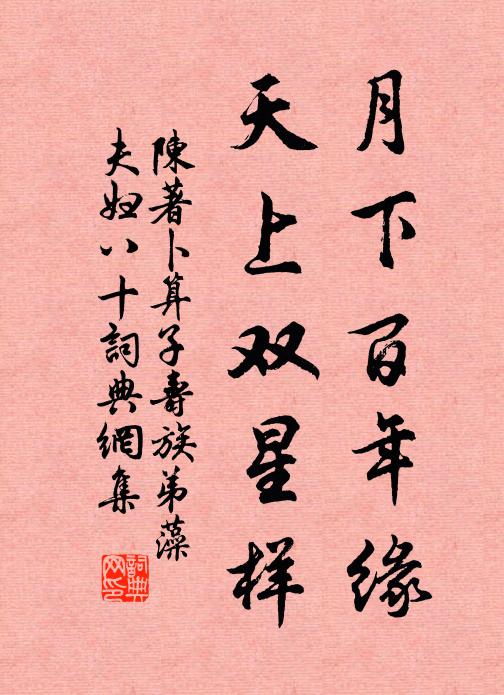 月下百年缘
天上双星样
陳著卜算子壽族弟藻
夫婦八十詞典網集
詞典
网印